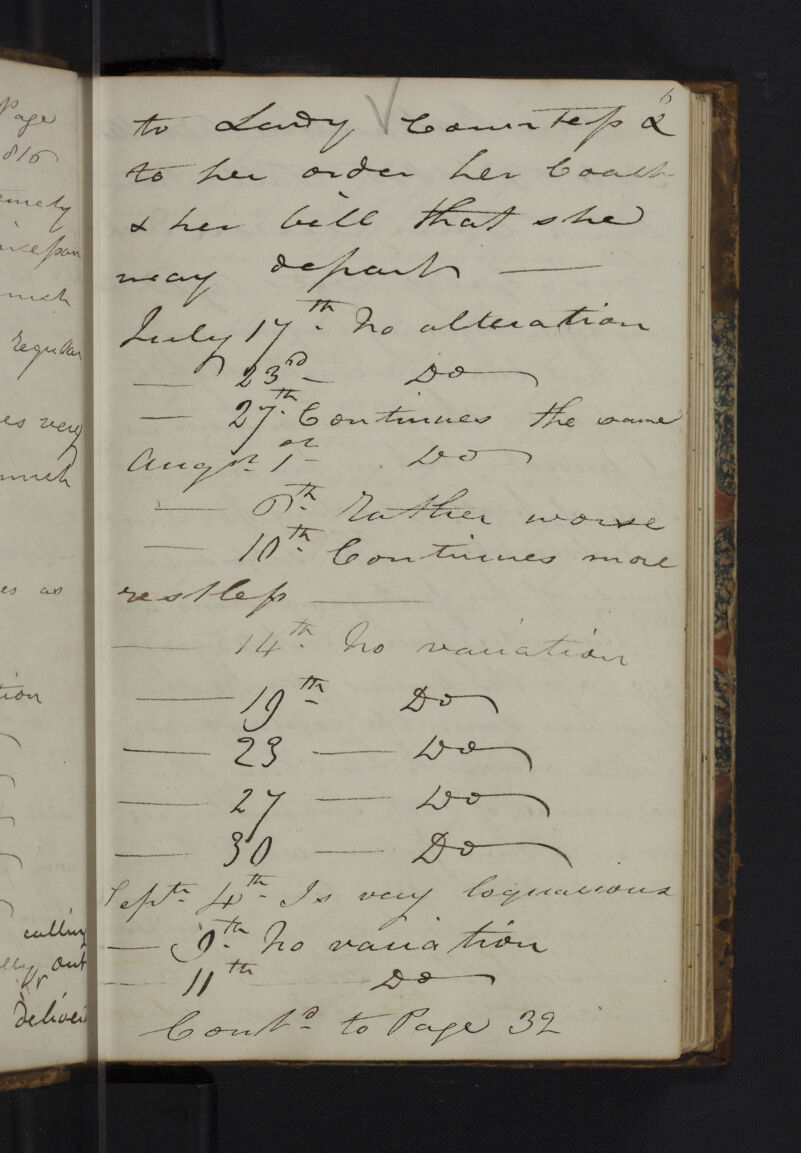 6
to Lady Countess &
to her order her Coach
& her bill that she
may depart —
July 17th. No alteration
— 23rd — Do
— 27th. Continues the same
Augst. 1st — Do
— 6th. Rather worse
— 10th. Continues more
restless —
— 14th. No variation
— 19th Do
— 23 — Do
— 27 — Do
— 30 — Do
Septr. 4th. Is very loquacious
— 9th. No variation
— 11th — Do
Contd. to Page 32
Page
816
much
Regular
es very
much
es as
tion
calling
out
Deliver